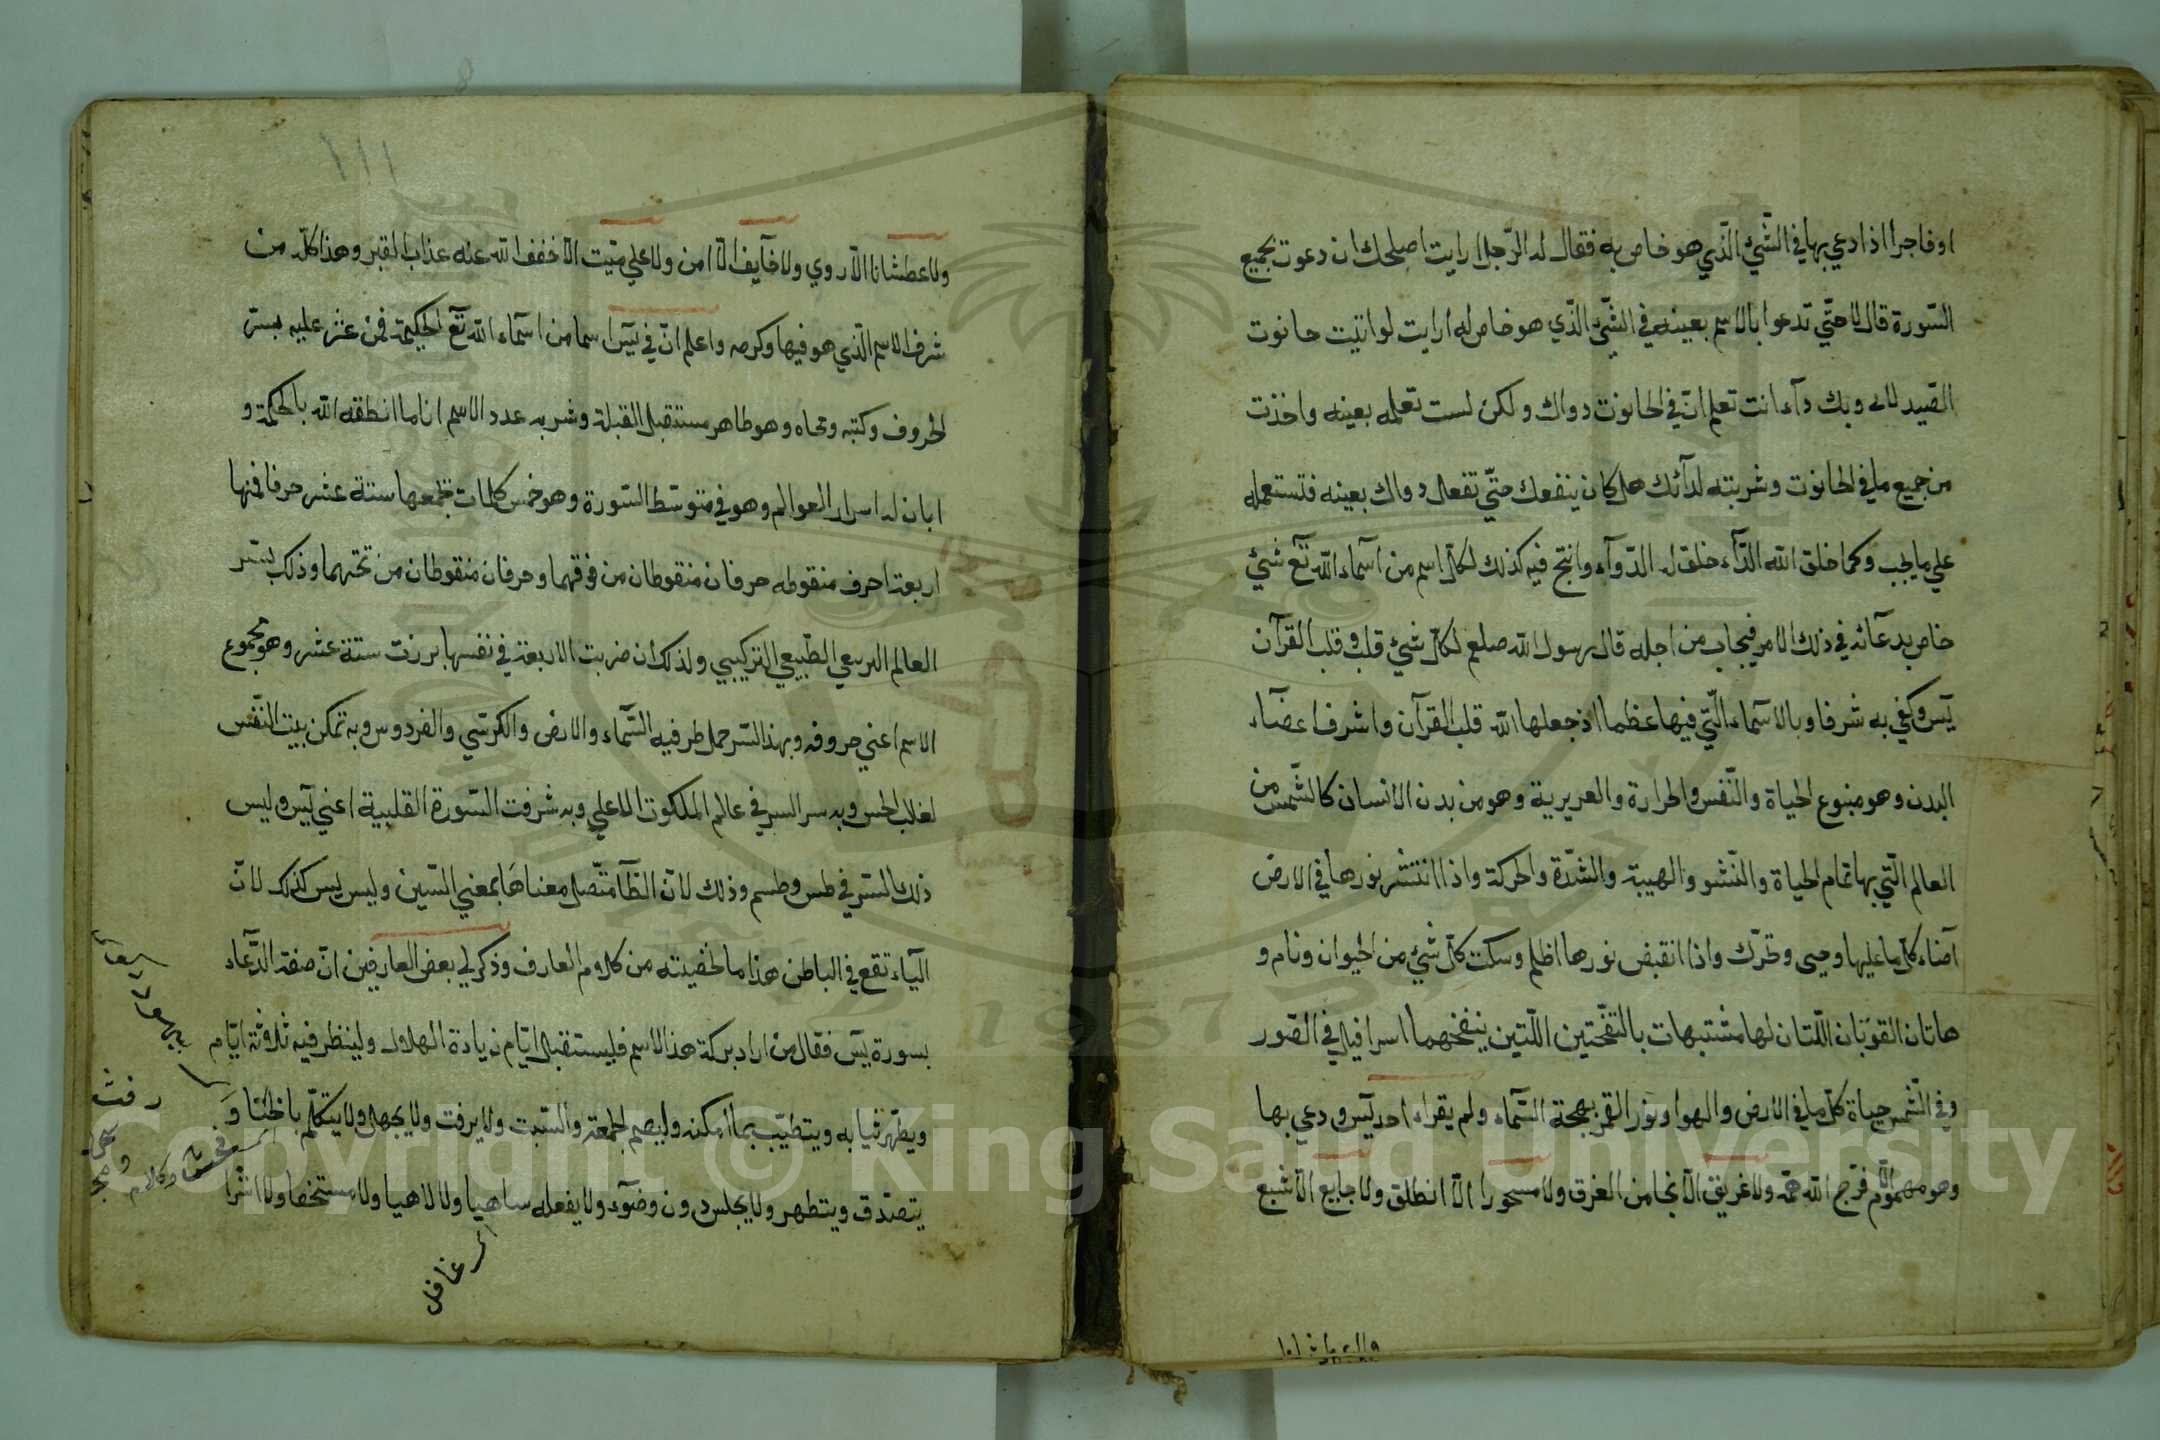 اوفاجرا اذا دعي بها في الشّيئ الّذي هو خاص به فقال له الرّجل ارايت اصلحك ان دعوت بجميع
السّورة قال لا حتّي تدعوا بالاسم بعينه في الشّيئ الّذي هو خاص له ارايت لو اتيت حانوت
الصّيدلاني وبك دآء انت تعلم انّ في الحانوت دواك ولكن لست تعلمه بعينه واخذت
من جميع ما في الحانوت وشربته لدآئك هل كان ينفعك حتّي تفعل دواك بعينه فتستعمله
علي ما يجب وكما خلق الله الدّآء خلق له الدّوآء وانتج فيه كذلك لكلّ اسم من آسمآء الله تع شيئ
خاص بدعآئه في ذلك الامر فيجاب من اجله قال رسول الله صلعم لكلّ شيئ قلب وقلب القرآن
يٓس وكفي به شرفا وبالاسمآء الّتي فيها عظما اذ جعلها الله قلب القرآن واشرف اعضآء
البدن وهو منبوع الحياة والنّفس والحرارة والعريرية وهو من بدن الانسان كالشّمس من
العالم الّتي بها تمام الحياة والنّشو والهيبة والشدّة والحركة واذا انتشر نورها في الارض
آضاء كلّ ما عليها وحيى وتحرّك واذا انقبض نورها اظلم وسكت كلّ شيئ من الحيوان ونام و
هاتان القوّتان اللّتان لها مشتبهات بالنّفختين اللّتين ينفخهما اسرافيل في الصّور
وفي الشّمس حياة كلّ ما في الارض والهوا ونور القمر بهجة السّمآء ولم يقراء احد يٓس ودعي بها
وهو مهموم الّا فرّج الله همّه ولا غريق الّا نجا من الغرق ولا مسحورا الّا انطلق ولا جايع الّا شبع
١١١
ولا عطشانا الّا روي ولا خآيف الّا امن ولا علي ميّت الّا خفف الله عنه عذاب القبر وهذا كلّه من
شرف الاسم الّذي هو فيها وكرمه واعلم انّ في يٓس اسما من اسمآء الله تع الحكيمة فمن عثر عليه بسرّ
الحروف وكتبه ومحاه وهو طاهر مستقبل القبلة وشربه عدد الاسم اناما انطقه الله بالحكمة و
ابان له اسرار العوالم وهو في متوسّط السّورة وهو خمس كلمات تجمعها ستة عشر حرفا فمنها
اربعة احرف منقوطه حرفان منقوطان من فوقهما وحرفان منقوطان من تحتهما وذلك بسّر
العالم البريعي الطّبيعي التركيبي ولذلك ان ضربت الاربعة في نفسها برزت ستة عشر وهو مجموع
الاسم اعني حروفه وبهذ السّر حمل طرفيه السّمآء والارض والكرسّي والفردوس وبه تمكن بيت النّفس
لغالب الحس وبه سر السر في عالم الملكوت الاعلي وبه شرفت السّورة القلبية اعني يٓس وليس
ذلك السّر في طس وطسم وذلك لانّ الطآ متّصل معناها بمعني السّين وليس يس كذلك لانّ
اليآء تقع في الباطن هذا ما لخصيته من كلام العارف وذكر لي بعض العارفين انّ صفة الدّعآء
بسورة يٓس فقال من اراد بركة هذا الاسم فليستقبل ايّام زيادة الهلال ولينظر فيه ثلاثة ايّام
ويطهّر ثيابه ويتطيّب بما امكنه وليصم الجمعة والسّبت ولا يرفث ولا يجهل ولا يتكلّم باخنا و
يتصدّق ويتطهر ولا يجلس دون وضوء ولا يفعله ساهيا ولا لاهيا ولا مستخفا ولا اشرا
رفث
غافل